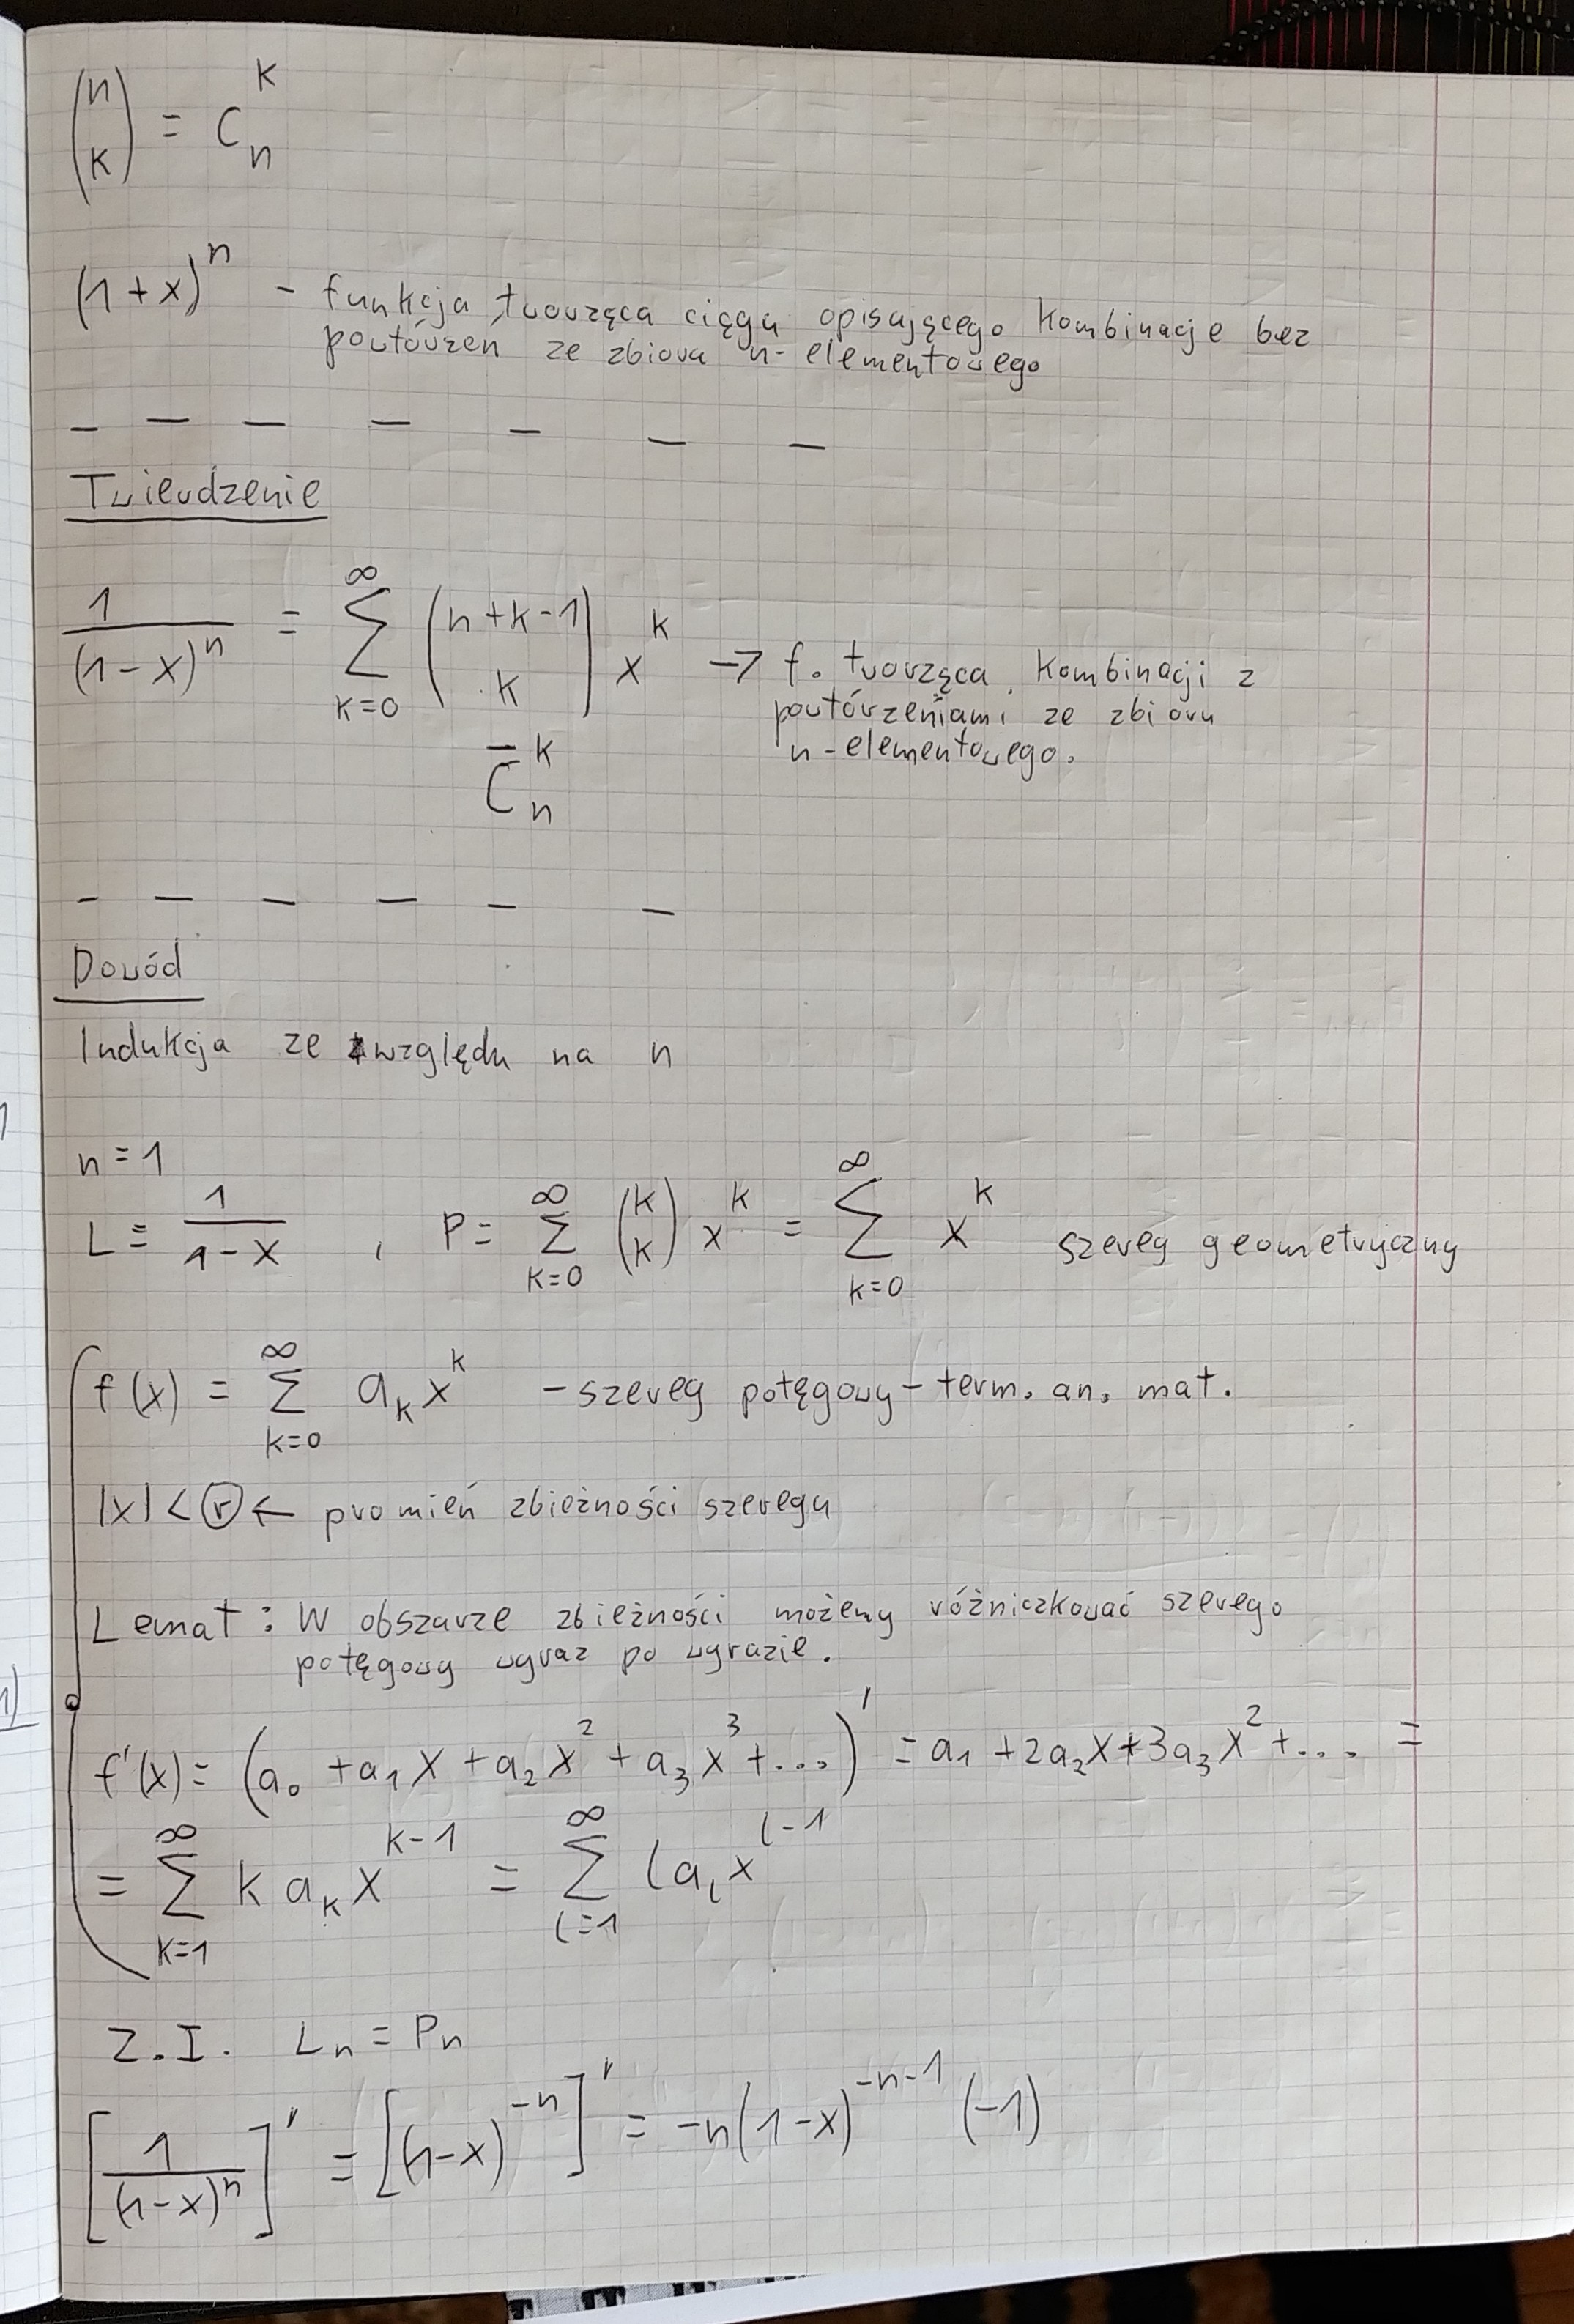 (n k) = C_n^K
(1+x)^n - funkcja tworząca ciągu opisującego kombinacje bez
powtórzeń ze zbioru n-elementowego
Twierdzenie
1/(1-x)^n = ∑_{k=0}^{∞} (n+k-1 k) x^k → f. tworząca kombinacji z
powtórzeniami ze zbioru
n-elementowego.
C̄_n^k
Dowód
Indukcja ze względu na n
n=1
L = 1/(1-x) , P = ∑_{k=0}^{∞} (k k) x^k = ∑_{k=0}^{∞} x^k szereg geometryczny
f(x) = ∑_{k=0}^{∞} a_k x^k - szereg potęgowy - term. an. mat.
|x| < r ← promień zbieżności szeregu
Lemat: W obszarze zbieżności możemy różniczkować szerego
potęgowy wyraz po wyrazie.
f'(x) = (a_0 + a_1 x + a_2 x^2 + a_3 x^3 + ...)' = a_1 + 2a_2 x + 3a_3 x^2 + ... =
= ∑_{k=1}^{∞} k a_k x^{k-1} = ∑_{l=1}^{∞} l a_l x^{l-1}
Z.I. L_n = P_n
[1/(1-x)^n]' = [(1-x)^{-n}]' = -n(1-x)^{-n-1} (-1)